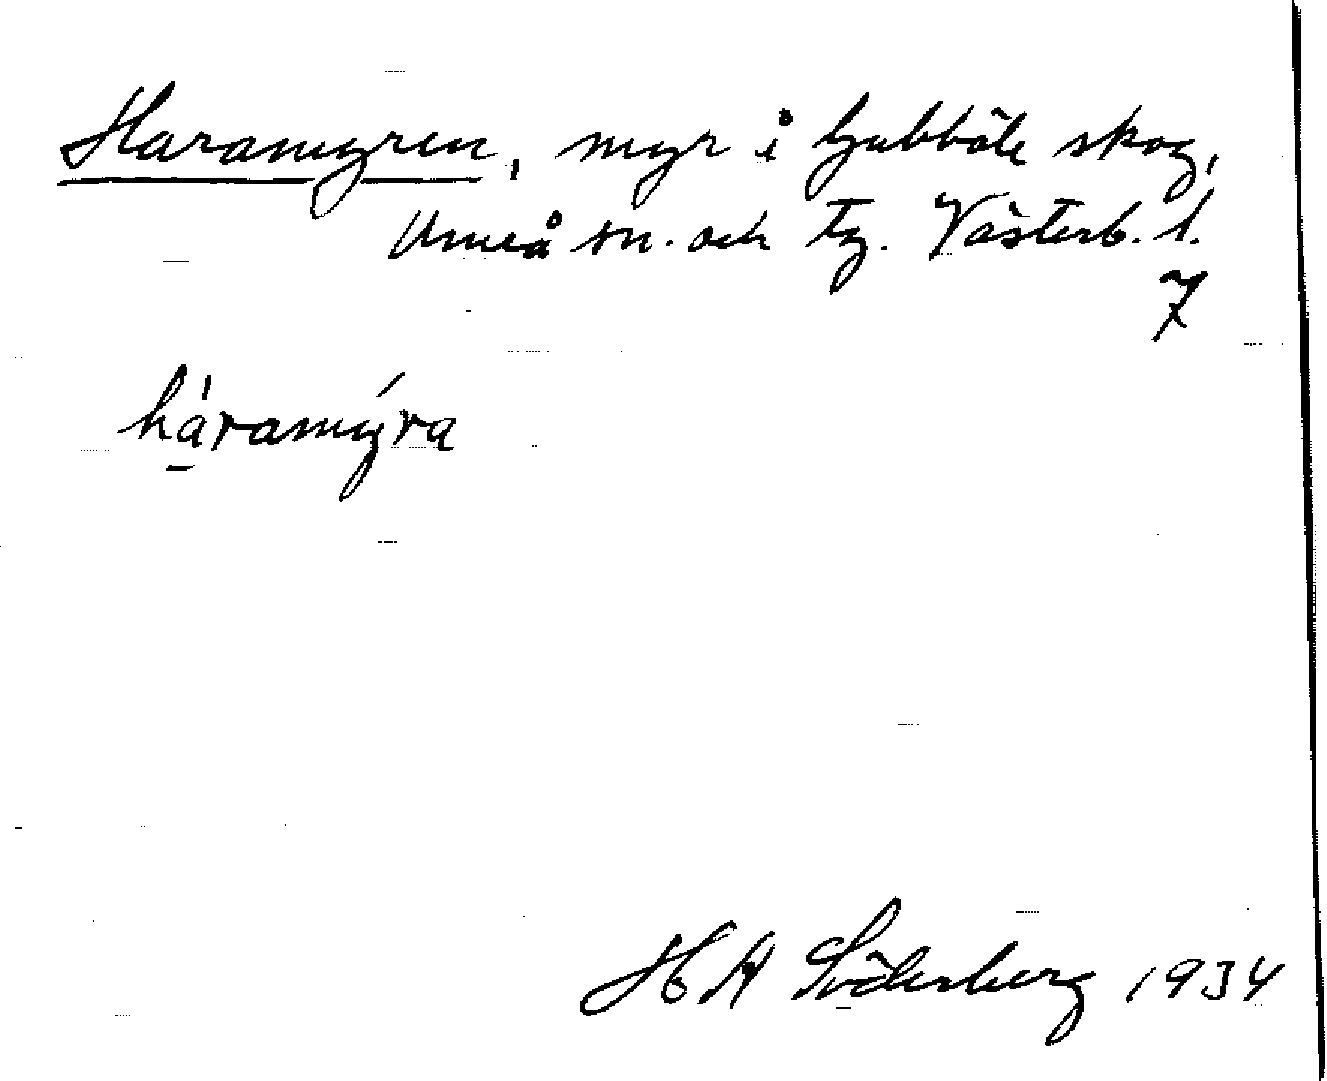 Haramyren, myr i Gubböle skog,
Umeå sn. och tg. Västerb. l.
7
háramýra
H A Söderberg 1934